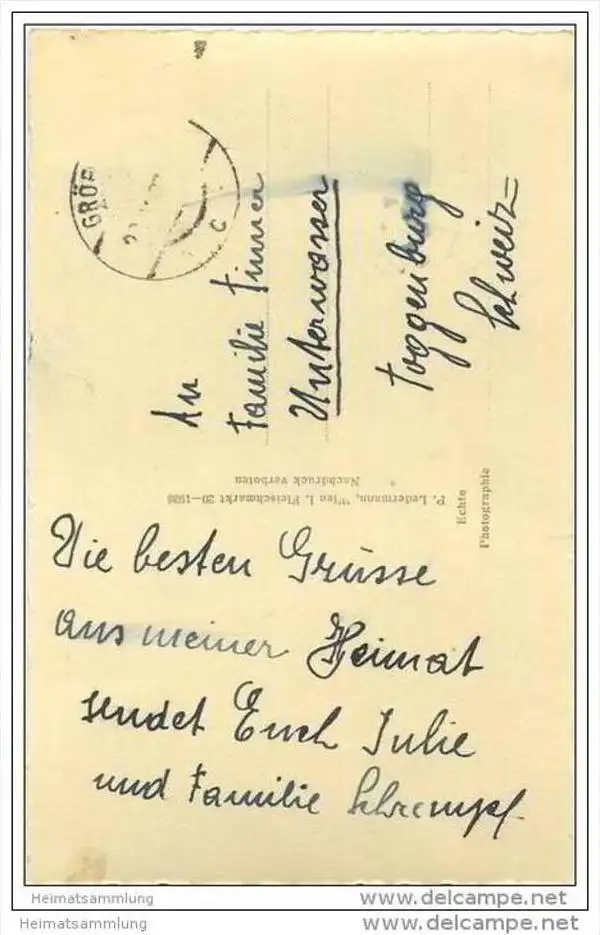 GRÖB
C
An
Familie Zimmer
Unterwasser
Toggenburg
Schweiz=
P. Ledermann, Wien I. Fleischmarkt 20—1936
Nachdruck verboten
Echte
Photographie
Die besten Grüsse
aus meiner Heimat
sendet Euch Julie
und Familie Schrempf.
Heimatsammlung
www.delcampe.net
Heimatsammlung
www.delcampe.net